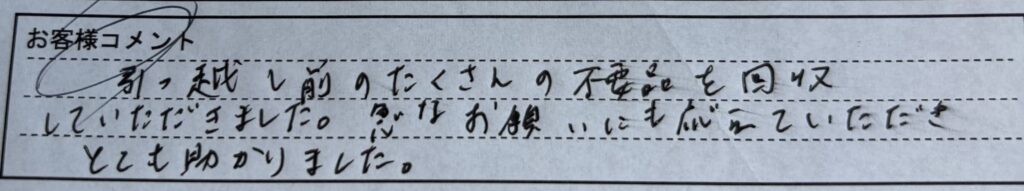 お客様コメント
引っ越し前のたくさんの不要品を回収
していただきました。急なお願いにも応えていただき
とても助かりました。